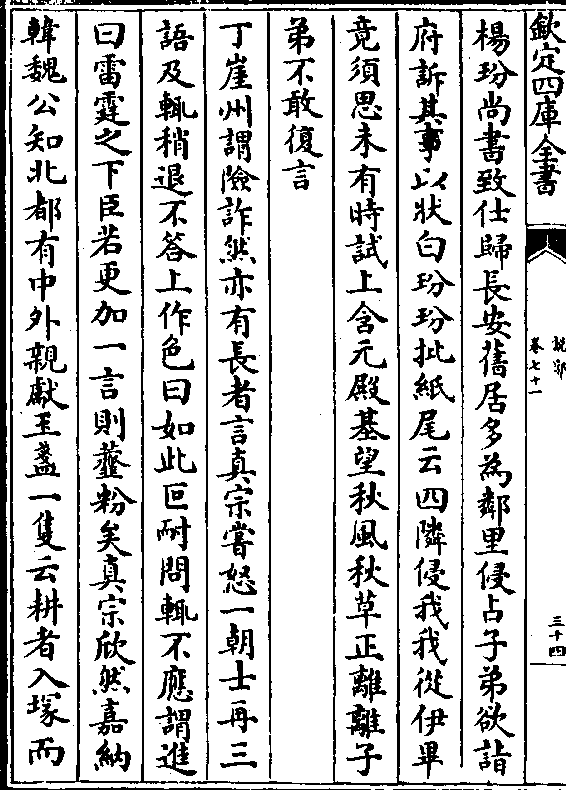 欽定四庫全書
說郛
卷七十一
三十四
楊玢尚書致仕歸長安舊居多為鄰里侵占子弟欲詣
府訴其事以狀白玢玢批紙尾云四隣侵我我從伊畢
竟須思未有時試上含元殿基望秋風秋草正離離子
弟不敢復言
丁崖州謂險詐然亦有長者言真宗嘗怒一朝士再三
語及輒稍退不答上作色曰如此叵耐問輒不應謂進
曰雷霆之下臣若更加一言則虀粉矣真宗欣然嘉納
韓魏公知北都有中外親獻玉盞一隻云耕者入塚而